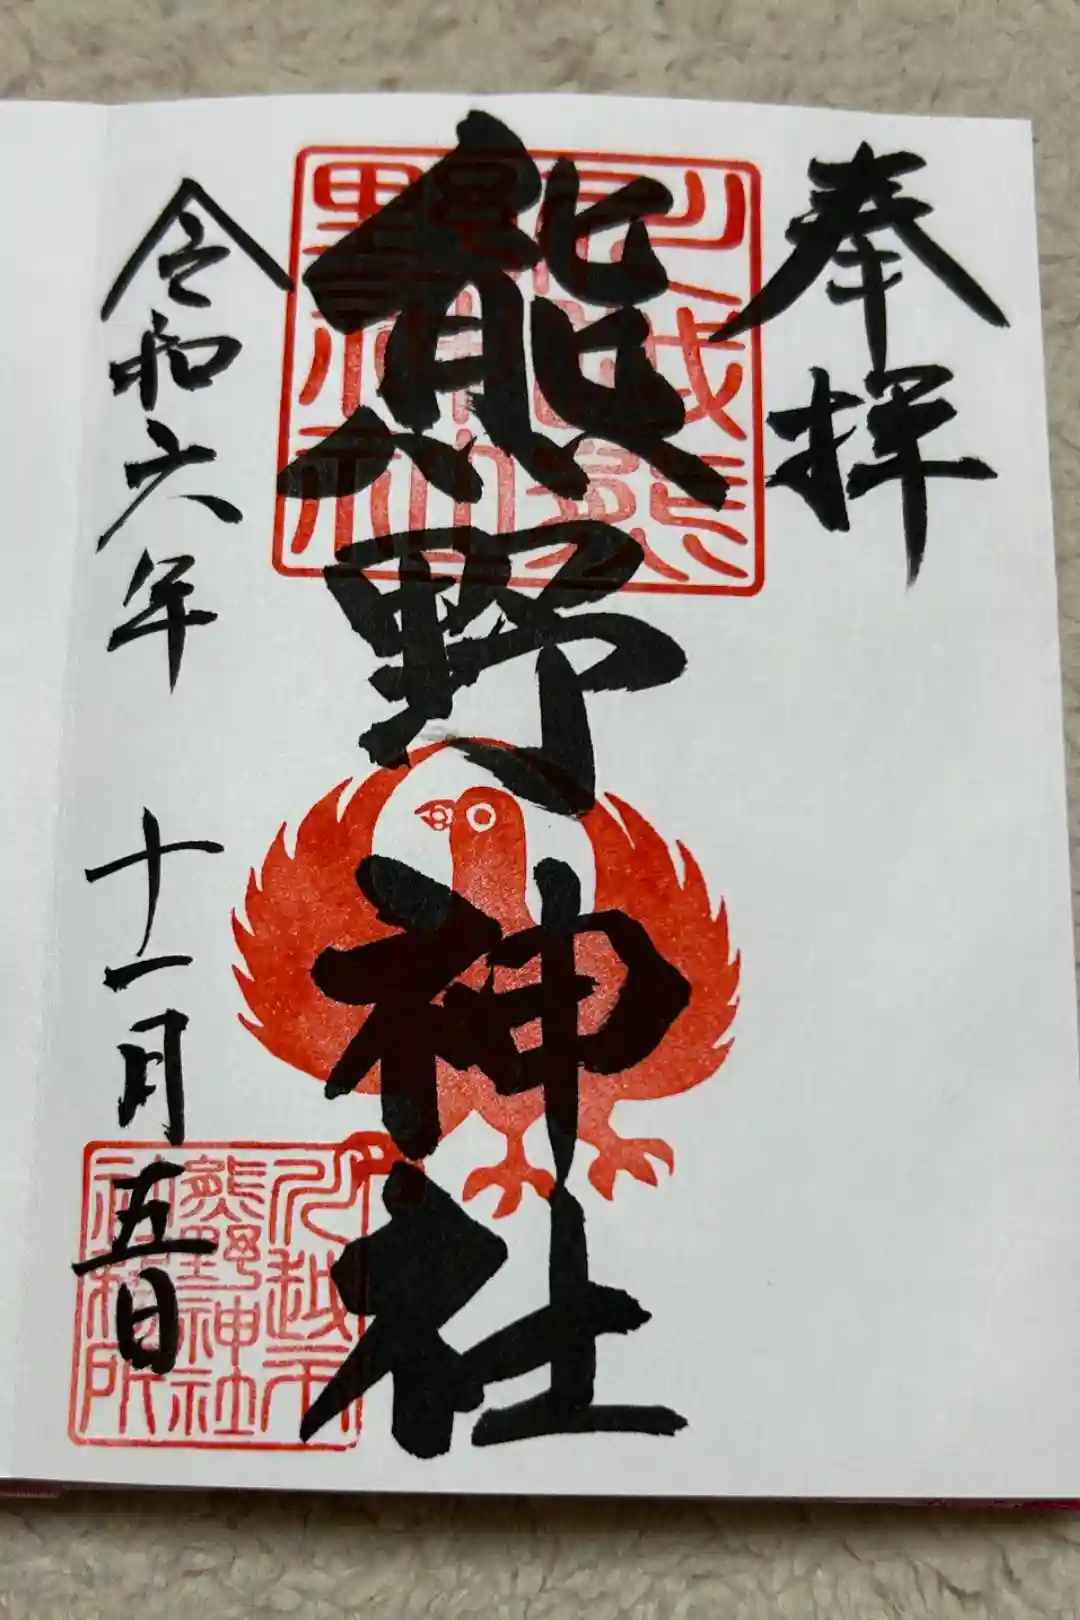 奉拝
川越市熊野神社
熊野神社
令和六年 十一月五日
川越市
熊野神社
社務所